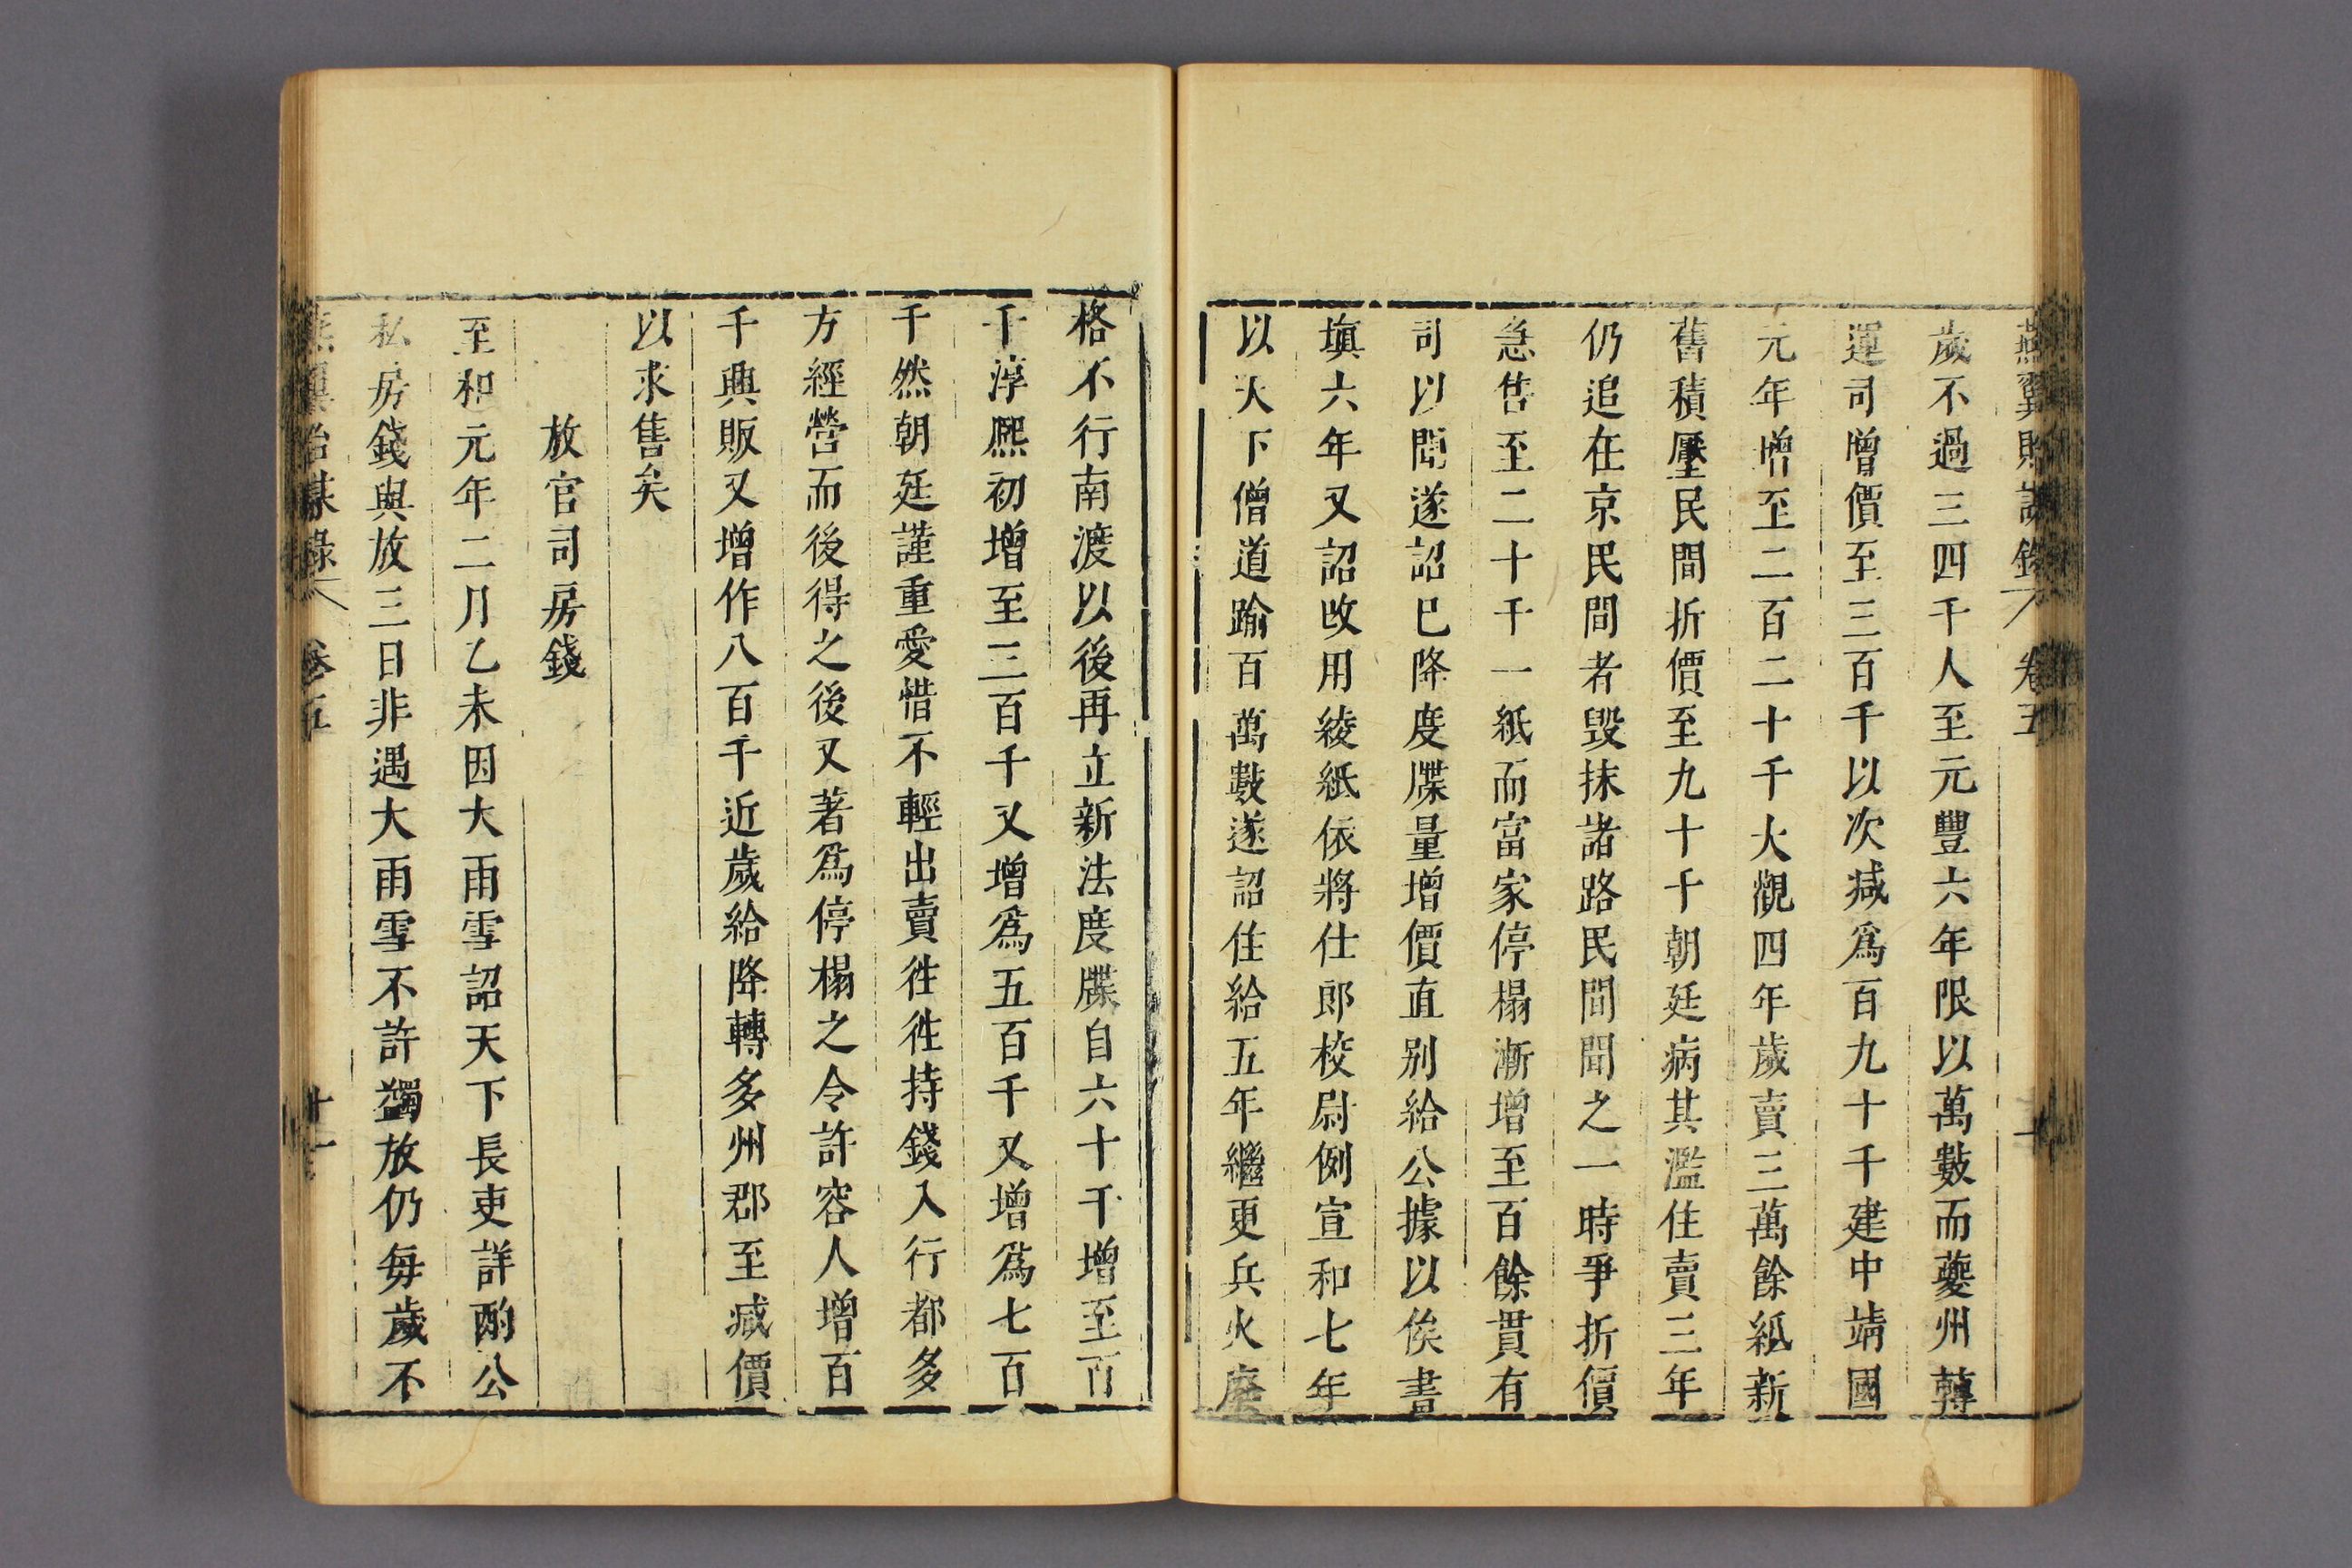 燕翼貽謀錄 卷五
歲不過三四千人至元豐六年限以萬數而夔州轉
運司增價至三百千以次减爲百九十千建中靖國
元年增至二百二十千大觀四年歲賣三萬餘紙新
舊積壓民間折價至九十千朝廷病其濫住賣三年
仍追在京民間者毀抹諸路民間聞之一時爭折價
急售至二十千一紙而富家停榻漸增至百餘貫有
司以聞遂詔已降度牒量增價直别給公據以俟書
塡六年又詔改用綾紙依將仕郎校尉例宣和七年
以天下僧道踰百萬數遂詔住給五年繼更兵火廢
格不行南渡以後再立新法度牒自六十千增至百
千淳熙初增至三百千又增爲五百千又增爲七百
千然朝廷謹重愛惜不輕出賣徃徃持錢入行都多
方經營而後得之後又著爲停榻之令許容人增百
千興販又增作八百千近歲給降轉多州郡至减價
以求售矣
放官司房錢
至和元年二月乙未因大雨雪詔天下長吏詳酌公
私房錢與放三日非遇大雨雪不許獨放仍每歲不
燕翼貽謀錄 卷五 十一